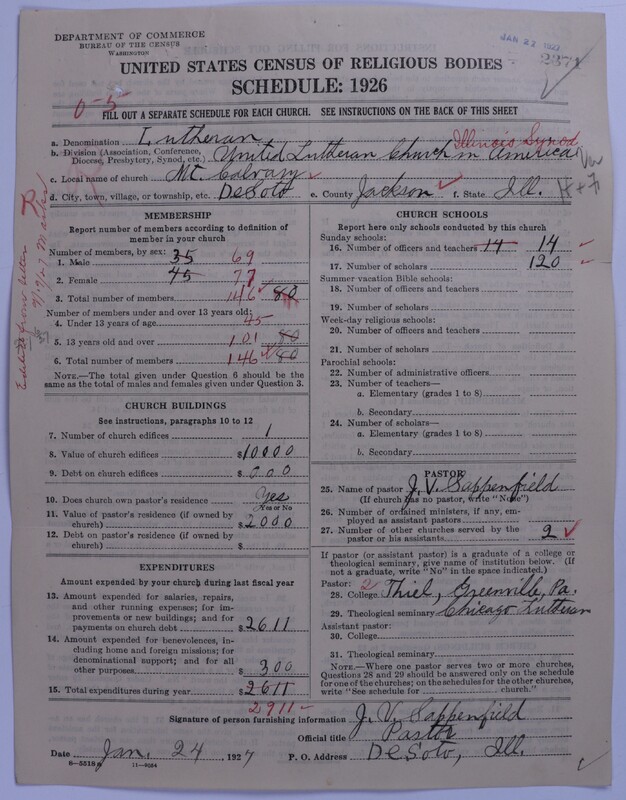 DEPARTMENT OF COMMERCE
BUREAU OF THE CENSUS
WASHINGTON
JAN 27 1927
2371
UNITED STATES CENSUS OF RELIGIOUS BODIES
SCHEDULE: 1926
0-5
FILL OUT A SEPARATE SCHEDULE FOR EACH CHURCH. SEE INSTRUCTIONS ON THE BACK OF THIS SHEET
a. Denomination Lutheran,
Illinois Synod
b. Division (Association, Conference, Diocese, Presbytery, Synod, etc.) United Lutheran Church in America
c. Local name of church Mt Calvary
d. City, town, village, or township, etc. DeSoto e. County Jackson f. State Ill.
MEMBERSHIP
Report number of members according to definition of
member in your church
Number of members, by sex:
1. Male 35 69
2. Female 45 77
3. Total number of members 146 80
Number of members under and over 13 years old:
4. Under 13 years of age 45
5. 13 years old and over 101 80
6. Total number of members 146 80
NOTE.—The total given under Question 6 should be
same as the total of males and females given under Question 3.
CHURCH BUILDINGS
See instructions, paragraphs 10 to 12
7. Number of church edifices 1
8. Value of church edifices $10000
9. Debt on church edifices $000
10. Does church own pastor's residence Yes
Yes or No
11. Value of pastor's residence (if owned by
church) $2000
12. Debt on pastor's residence (if owned by
church) $
EXPENDITURES
Amount expended by your church during last fiscal year
13. Amount expended for salaries, repairs,
and other running expenses; for im-
provements or new buildings; and for
payments on church debt $2611
14. Amount expended for benevolences, in-
cluding home and foreign missions; for
denominational support; and for all
other purposes $300
15. Total expenditures during year $2611
2911
CHURCH SCHOOLS
Report here only schools conducted by this church
Sunday schools:
16. Number of officers and teachers 14 14
17. Number of scholars 120
Summer vacation Bible schools:
18. Number of officers and teachers
19. Number of scholars
Week-day religious schools:
20. Number of officers and teachers
21. Number of scholars
Parochial schools:
22. Number of administrative officers
23. Number of teachers—
a. Elementary (grades 1 to 8)
b. Secondary
24. Number of scholars—
a. Elementary (grades 1 to 8)
b. Secondary
PASTOR
25. Name of pastor J. V. Sappenfield
(If church has no pastor, write "None")
26. Number of ordained ministers, if any, em-
ployed as assistant pastors
27. Number of other churches served by the
pastor or his assistants 2
If pastor (or assistant pastor) is a graduate of a college or
theological seminary, give name of institution below. (If
not a graduate, write "No" in the space indicated.)
Pastor:
28. College Thiel, Greenville, Pa.
29. Theological seminary Chicago Lutheran
Assistant pastor:
30. College
31. Theological seminary
NOTE.—Where one pastor serves two or more churches,
Questions 28 and 29 should be answered only on the schedule
for one of the churches; on the schedules for the other churches,
write "See schedule for ............ church."
Signature of person furnishing information J. V. Sappenfield
Official title Pastor
Date Jan. 24 1927 P. O. Address DeSoto, Ill.
8-5518 a 11-9084